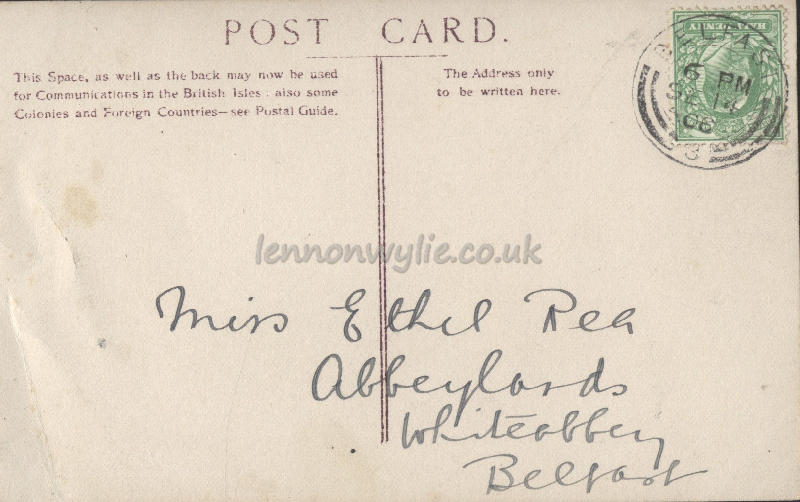 POST CARD.
This Space, as well as the back may now be used
for Communications in the British Isles : also some
Colonies and Foreign Countries—see Postal Guide.
The Address only
to be written here.
BELFAST
6 PM
SE 14
06
HALFPENNY
lennonwylie.co.uk
Miss Ethel Rea
Abbeylands
Whiteabbey
Belfast